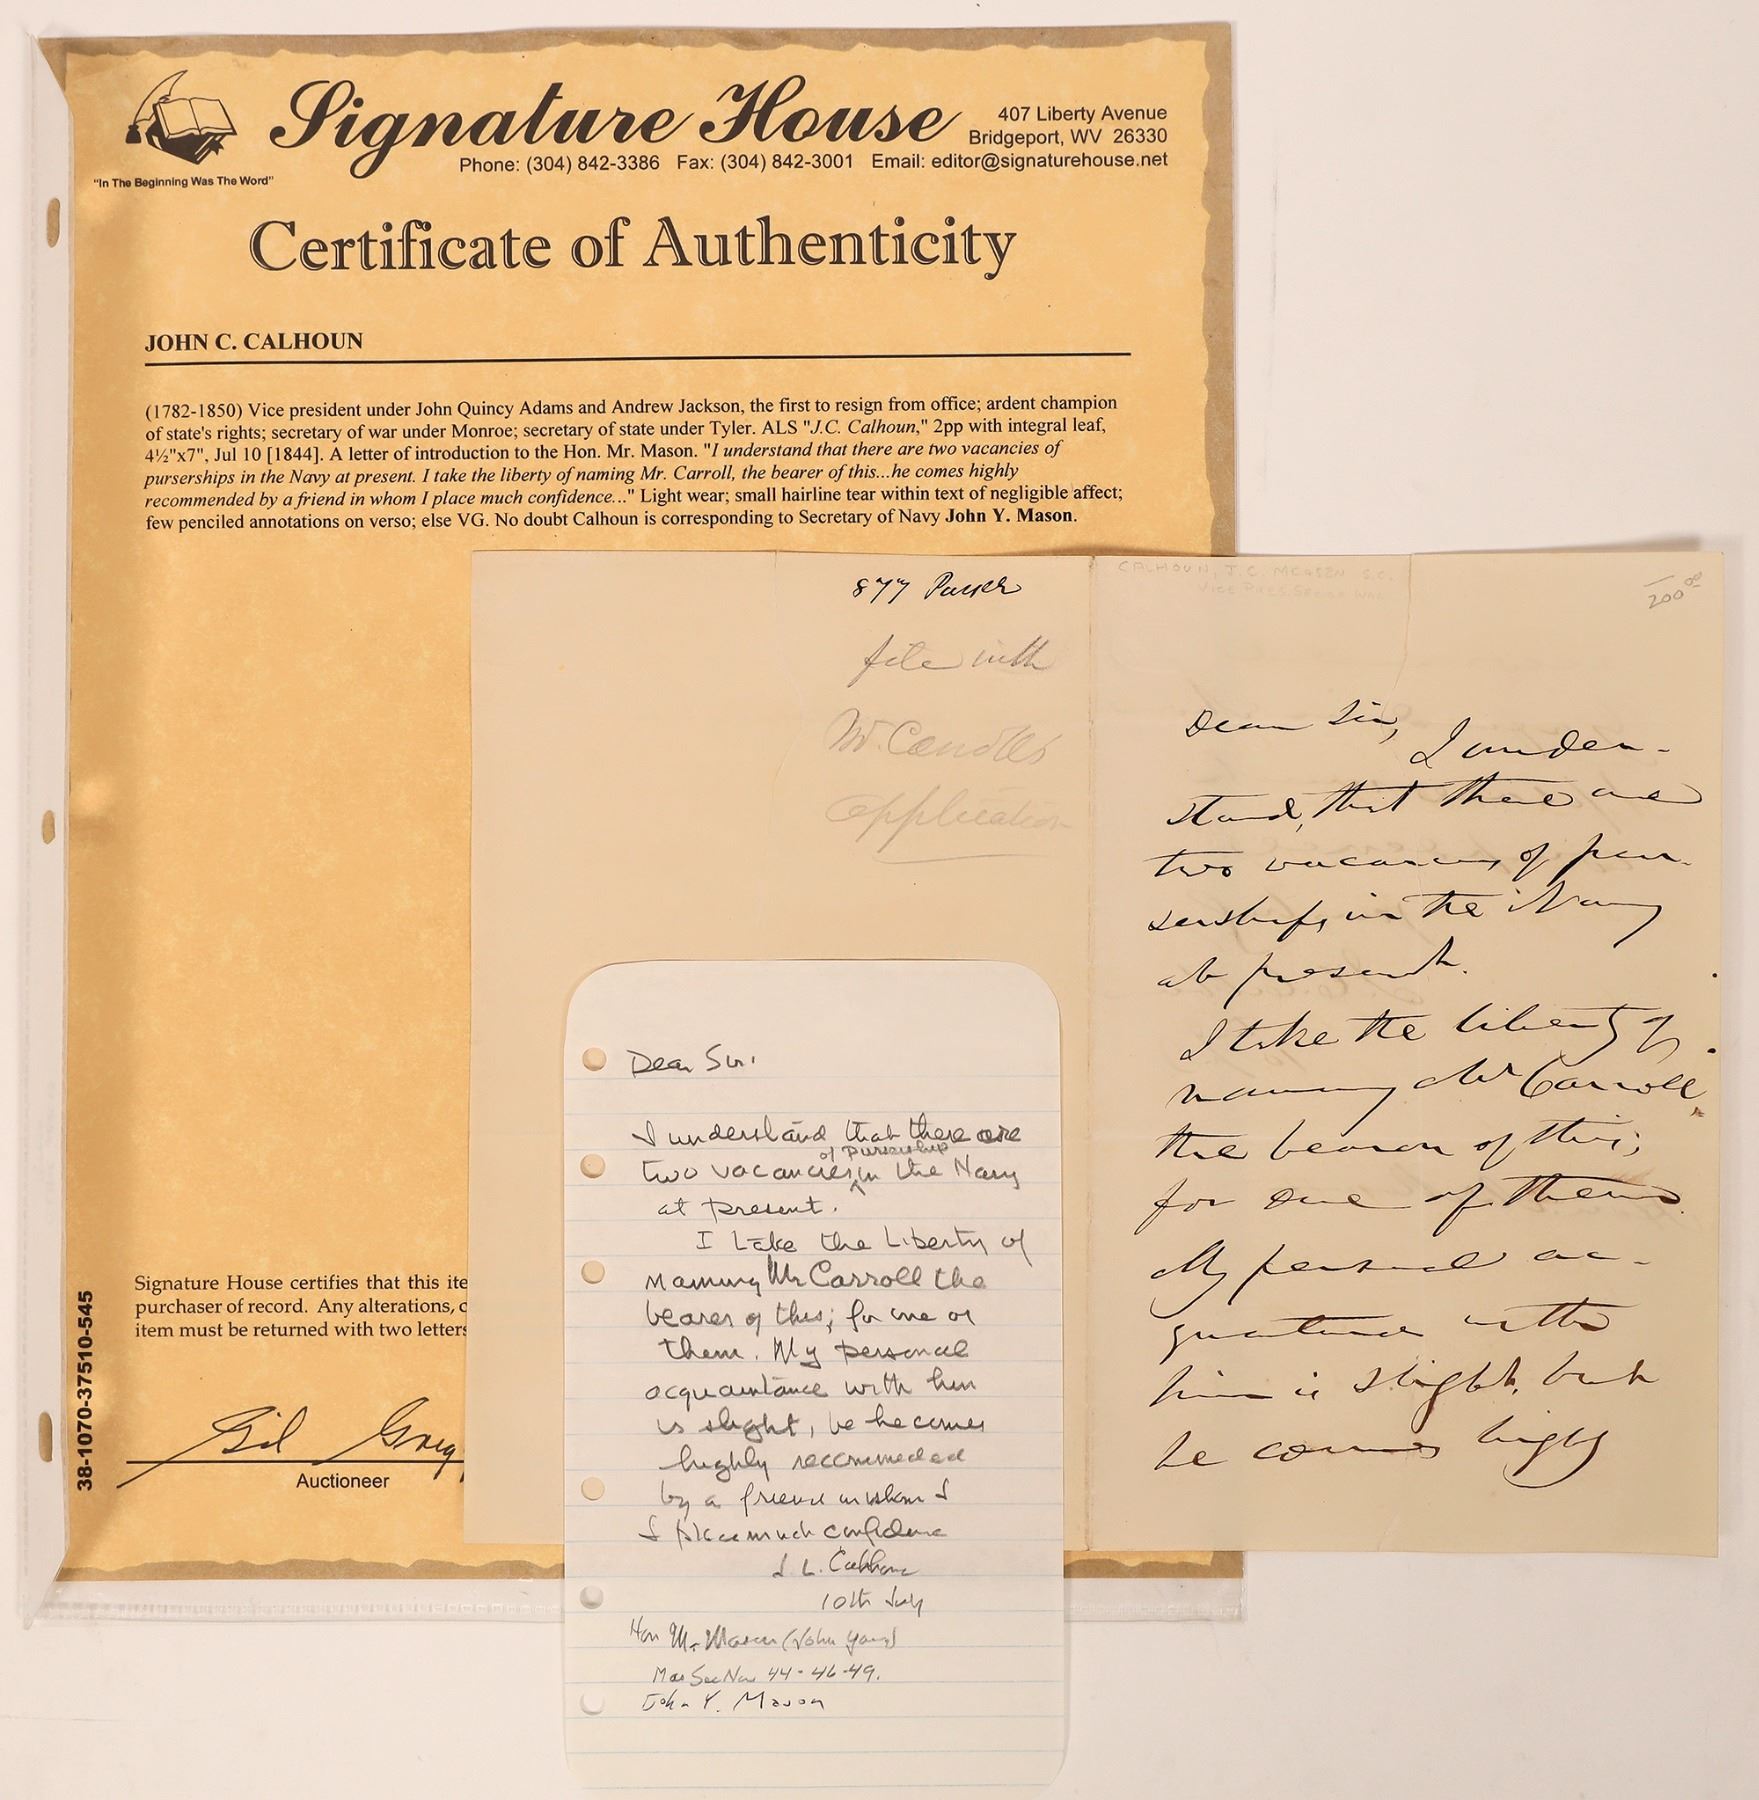 Signature House
407 Liberty Avenue
Bridgeport, WV 26330
Phone: (304) 842-3386 Fax: (304) 842-3001 Email: editor@signaturehouse.net
"In The Beginning Was The Word"
Certificate of Authenticity
JOHN C. CALHOUN
(1782-1850) Vice president under John Quincy Adams and Andrew Jackson, the first to resign from office; ardent champion
of state's rights; secretary of war under Monroe; secretary of state under Tyler. ALS "J.C. Calhoun," 2pp with integral leaf,
4½"x7", Jul 10 [1844]. A letter of introduction to the Hon. Mr. Mason. "I understand that there are two vacancies of
purserships in the Navy at present. I take the liberty of naming Mr. Carroll, the bearer of this...he comes highly
recommended by a friend in whom I place much confidence..." Light wear; small hairline tear within text of negligible affect;
few penciled annotations on verso; else VG. No doubt Calhoun is corresponding to Secretary of Navy John Y. Mason.
Signature House certifies that this ite
purchaser of record. Any alterations, c
item must be returned with two letters
Gil Grigg
Auctioneer
38-1070-37510-545
877 Purser
file with
application
CALHOUN, J.C. S.C.
Vice Pres. War
200
Dear Sir,
I under-
stand, that there are
two vacancies of pur-
serships in the Navy
at present.
I take the liberty of
naming Mr Carroll,
the bearer of this;
for one of them.
My personal ac-
quaintance with
him is slight, but
he comes highly
Dear Sir.
I understand that there are
of pursership
two vacancies in the Navy
at present.
I take the Liberty of
naming Mr Carroll the
bearer of this; for one or
them. My personal
acquaintance with him
is slight, be he comes
highly recommeded
by a friend in whom I
I place much confidence
J L. Calhoun
10th July
Hon Mr Mason (John Young)
Sec Nav 44-46-49.
John Y. Mason